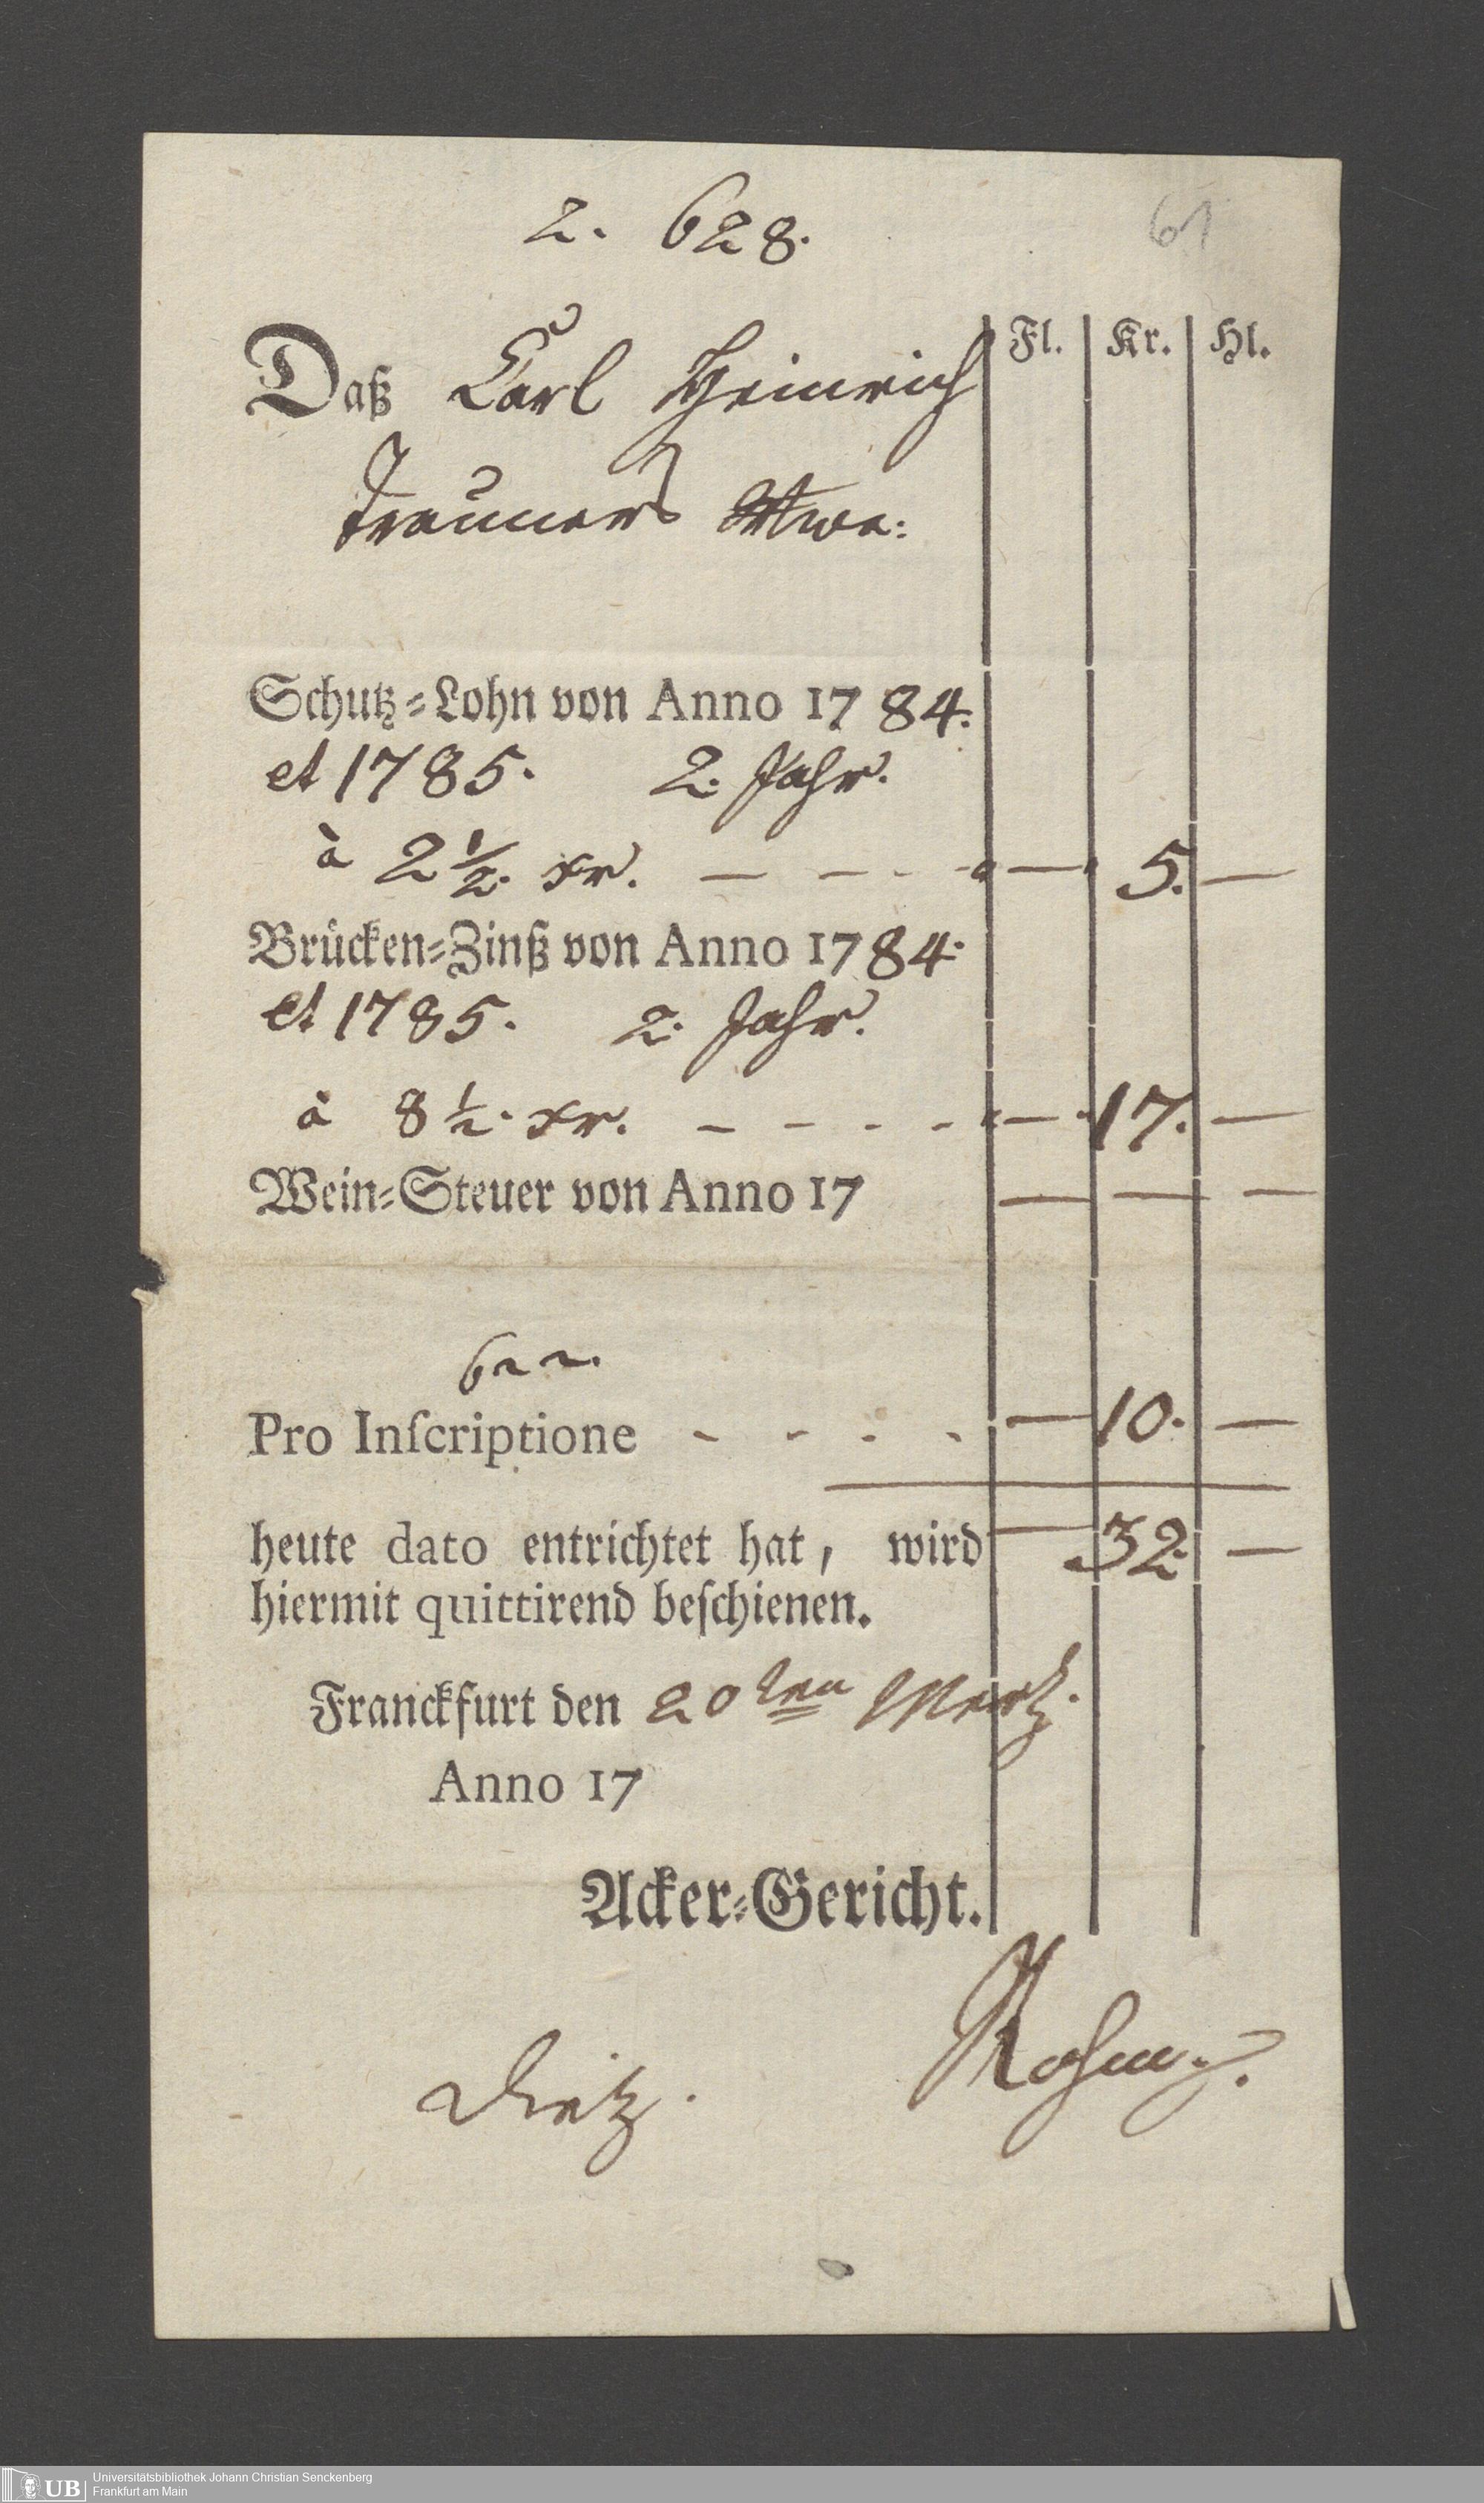 2. 628.
61
Fl. Kr. Hl.
Daß Carl Heinrich
Trauners Wwe:
Schutz=Lohn von Anno 1784.
et 1785. 2. Jahr.
à 2 1/2. xr. — — - - — 5. —
Brücken=Zinß von Anno 1784.
et 1785. 2. Jahr.
à 8 1/2. xr. - - - - — 17. —
Wein=Steuer von Anno 17 — — —
Pro Inſcriptione - - - - — 10. —
heute dato entrichtet hat, wird — 32. —
hiermit quittirend beſchienen.
Franckfurt den 20ten Mertz.
Anno 17
Acker=Gericht.
Dietz.
UB
Universitätsbibliothek Johann Christian Senckenberg
Frankfurt am Main